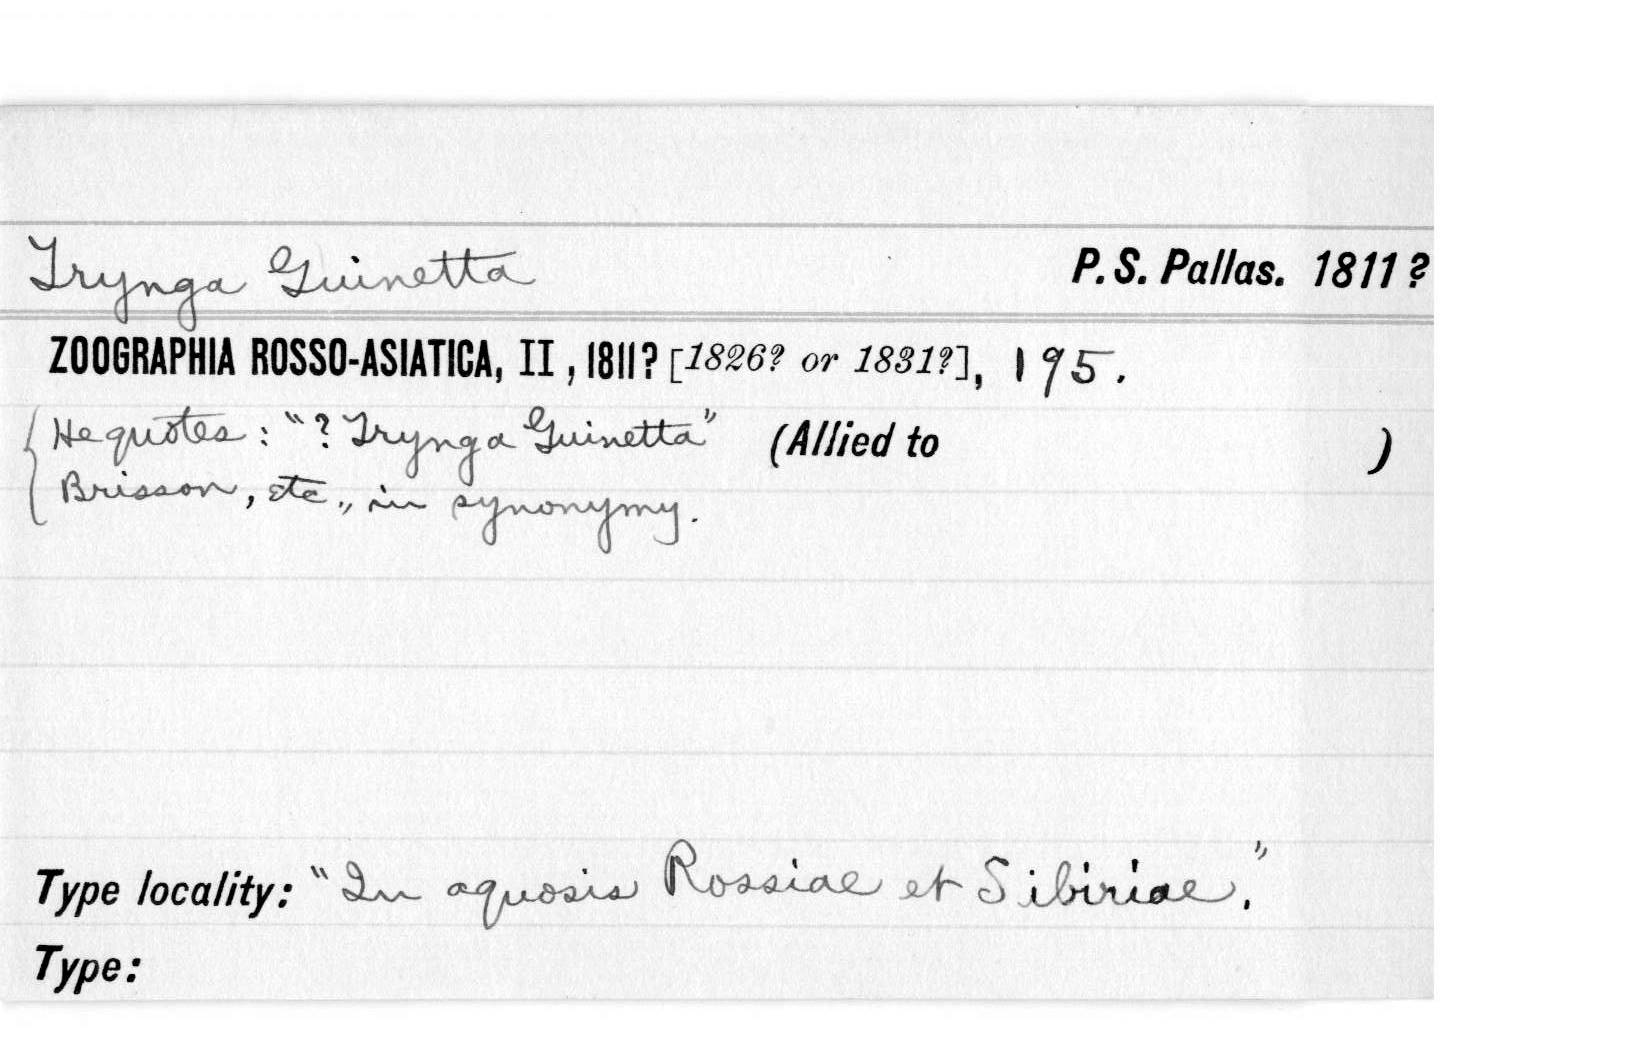 Trynga Guinetta P. S. Pallas. 1811?
ZOOGRAPHIA ROSSO-ASIATICA, II, 1811? [1826? or 1831?], 195.
He quotes: "? Trynga Guinetta" (Allied to )
Brisson, etc., in synonymy.
Type locality: "In aquosis Rossiae et Sibiriae."
Type: